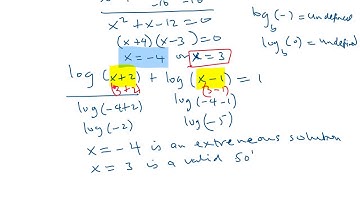 x² + x - 12 = 0
(x+4)(x-3) = 0
x = -4 or x = 3
log_b(-) = undefined
log_b(0) = undefined
log(x+2) + log(x-1) = 1
(3+2) (3-1)
log(-4+2) log(-4-1)
log(-2) log(-5)
x = -4 is an extreneous solution
x = 3 is a valid sol